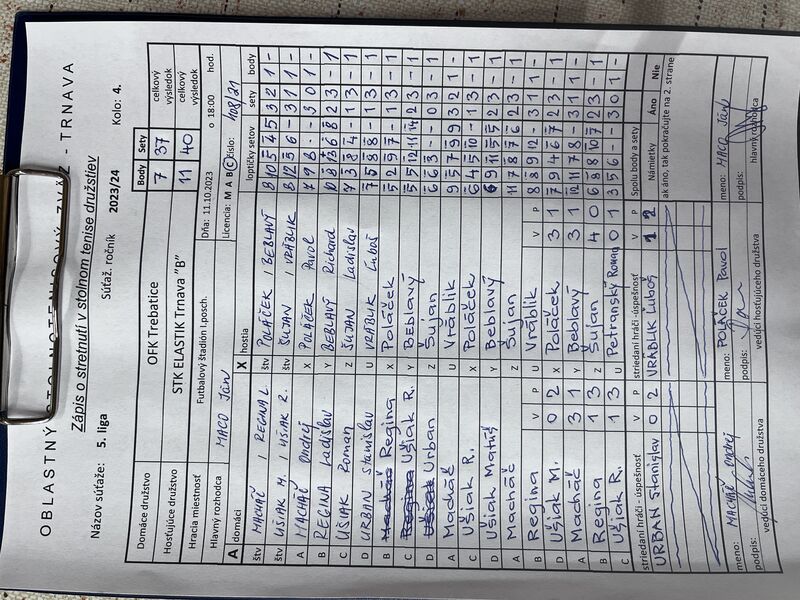 OBLASTNÝ STOLNOTENISOVÝ ZVÄZ - TRNAVA
Zápis o stretnutí v stolnom tenise družstiev
Názov súťaže: 5. liga Súťaž. ročník 2023/24 Kolo: 4.
Domáce družstvo OFK Trebatice Body Sety celkový výsledok
7 37
Hosťujúce družstvo STK ELASTIK Trnava "B" 11 40 celkový výsledok
Hracia miestnosť Futbalový štadión I.posch. Dňa: 11.10.2023 o 18:00 hod.
Hlavný rozhodca MACO Ján Licencia: M A B C číslo:
A domáci X hostia loptičky setov sety body
štv MACHÁČ / REGINA L. štv POLÁČEK / BEBLAVÝ 8 10 5 4 5 3 2 1 -
štv UŠIAK M. UŠIAK R. štv ŠUJAN / VRÁBLIK 8 12 5 6 - 3 1 1 -
A MACHÁČ Ondrej X POLÁČEK Pavol 7 9 8 - - 3 0 1 -
B REGINA Ladislav Y BEBLAVÝ Richard 2 3 - 1
C UŠIAK Roman Z ŠUJAN Ladislav 1 3 - 1
D URBAN Stanislav U VRÁBLIK Ľuboš 1 3 - 1
B Regina X Poláček 1 3 - 1
C Ušiak R. Y Beblavý 5 5 12 11 14 2 3 - 1
D Urban Z Šujan 6 6 3 - - 0 3 - 1
A Macháč U Vráblik 9 5 7 9 9 3 2 1 -
C Ušiak R. X Poláček 6 4 5 10 - 1 3 - 1
D Ušiak Matúš Y Beblavý 6 9 11 5 5 2 3 - 1
A Macháč Z Šujan 11 7 8 7 6 2 3 - 1
B Regina U Vráblik 8 8 9 12 7 3 1 1 -
D Ušiak M. X Poláček 7 9 4 6 7 2 3 - 1
A Macháč Y Beblavý 12 11 7 8 - 3 1 1 -
B Regina Z Šujan 6 8 8 10 7 2 3 - 1
C Ušiak R. U Petranský Roman 3 5 6 - - 3 0 1 -
V P
0 2
3 1
1 3
1 3
V P
3 1
3 1
4 0
0 1
striedaní hráči -úspešnosť V P striedaní hráči -úspešnosť V P Spolu body a sety
URBAN Stanislav 0 2 VRÁBLIK Ľuboš 1 2 Námietky Áno Nie
ak áno, tak pokračujte na 2. strane
meno: MACHÁČ Ondrej meno: POLÁČEK Pavol meno: MACO Ján
podpis: podpis: podpis:
vedúci domáceho družstva vedúci hosťujúceho družstva hlavný rozhodca